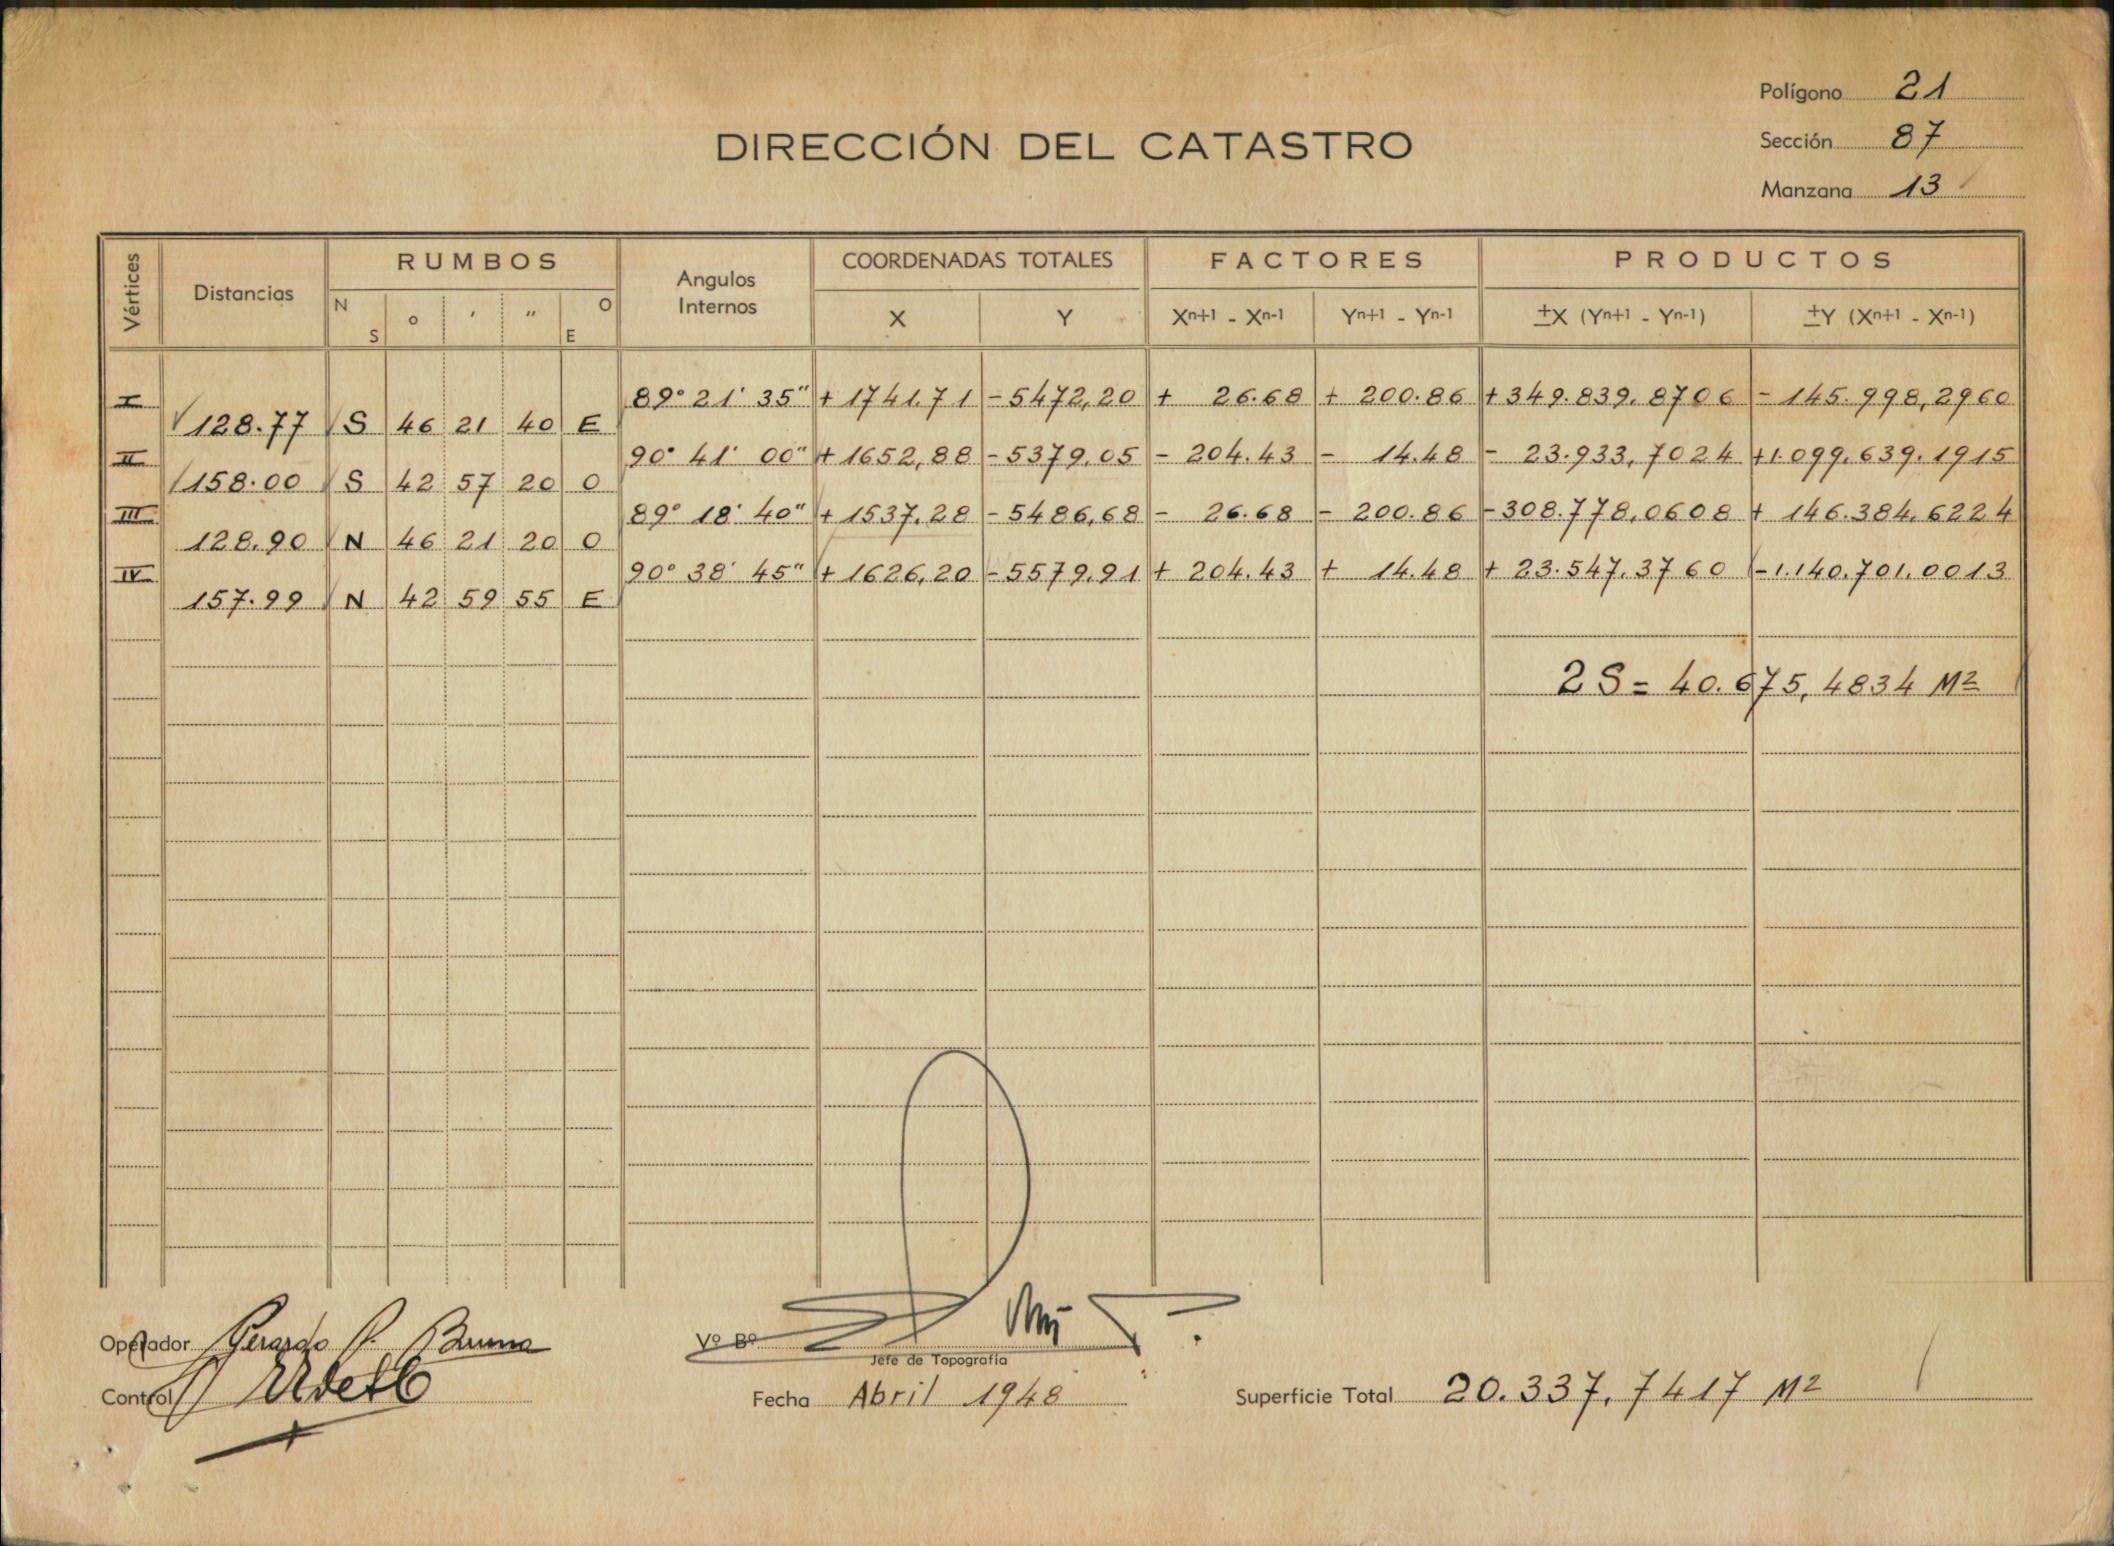 Polígono 21
DIRECCIÓN DEL CATASTRO
Sección 87
Manzana 13
Vértices Distancias RUMBOS Angulos Internos COORDENADAS TOTALES FACTORES PRODUCTOS
N S o ' " O E X Y Xn+1 - Xn-1 Yn+1 - Yn-1 ±X (Yn+1 - Yn-1) ±Y (Xn+1 - Xn-1)
I 89° 21' 35" + 1741.71 - 5472,20 + 26.68 + 200.86 + 349.839.8706 - 145.998,2960
128.77 S 46 21 40 E
II 90° 41' 00" + 1652,88 - 5379.05 - 204.43 - 14.48 - 23.933,7024 +1.099.639.1915
158.00 S 42 57 20 O
III 89° 18' 40" + 1537.28 - 5486,68 - 26.68 - 200.86 - 308.778,0608 + 146.384.6224
128.90 N 46 21 20 O
IV 90° 38' 45" + 1626,20 - 5579.91 + 204.43 + 14.48 + 23.547.3760 - 1.140.701.0013
157.99 N 42 59 55 E
2 S = 40.675,4834 M2
Operador Gerardo P. Bruma
Vº Bº
Jefe de Topografía
Control
Fecha Abril 1948
Superficie Total 20.337.7417 M2